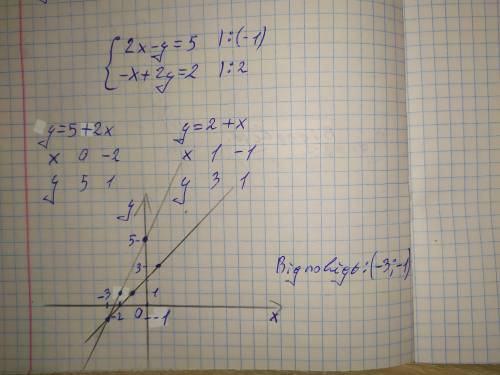 2x-y=5 |:(-1)
-x+2y=2 |:2
y=5+2x
x 0 -2
y 5 1
y=2+x
x 1 -1
y 3 1
y
5
3
-3
1
-2
0
-1
x
Відповідь:(-3;-1)